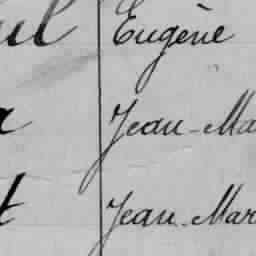 ul Eugène
a Jean-Ma
t Jean-Mar